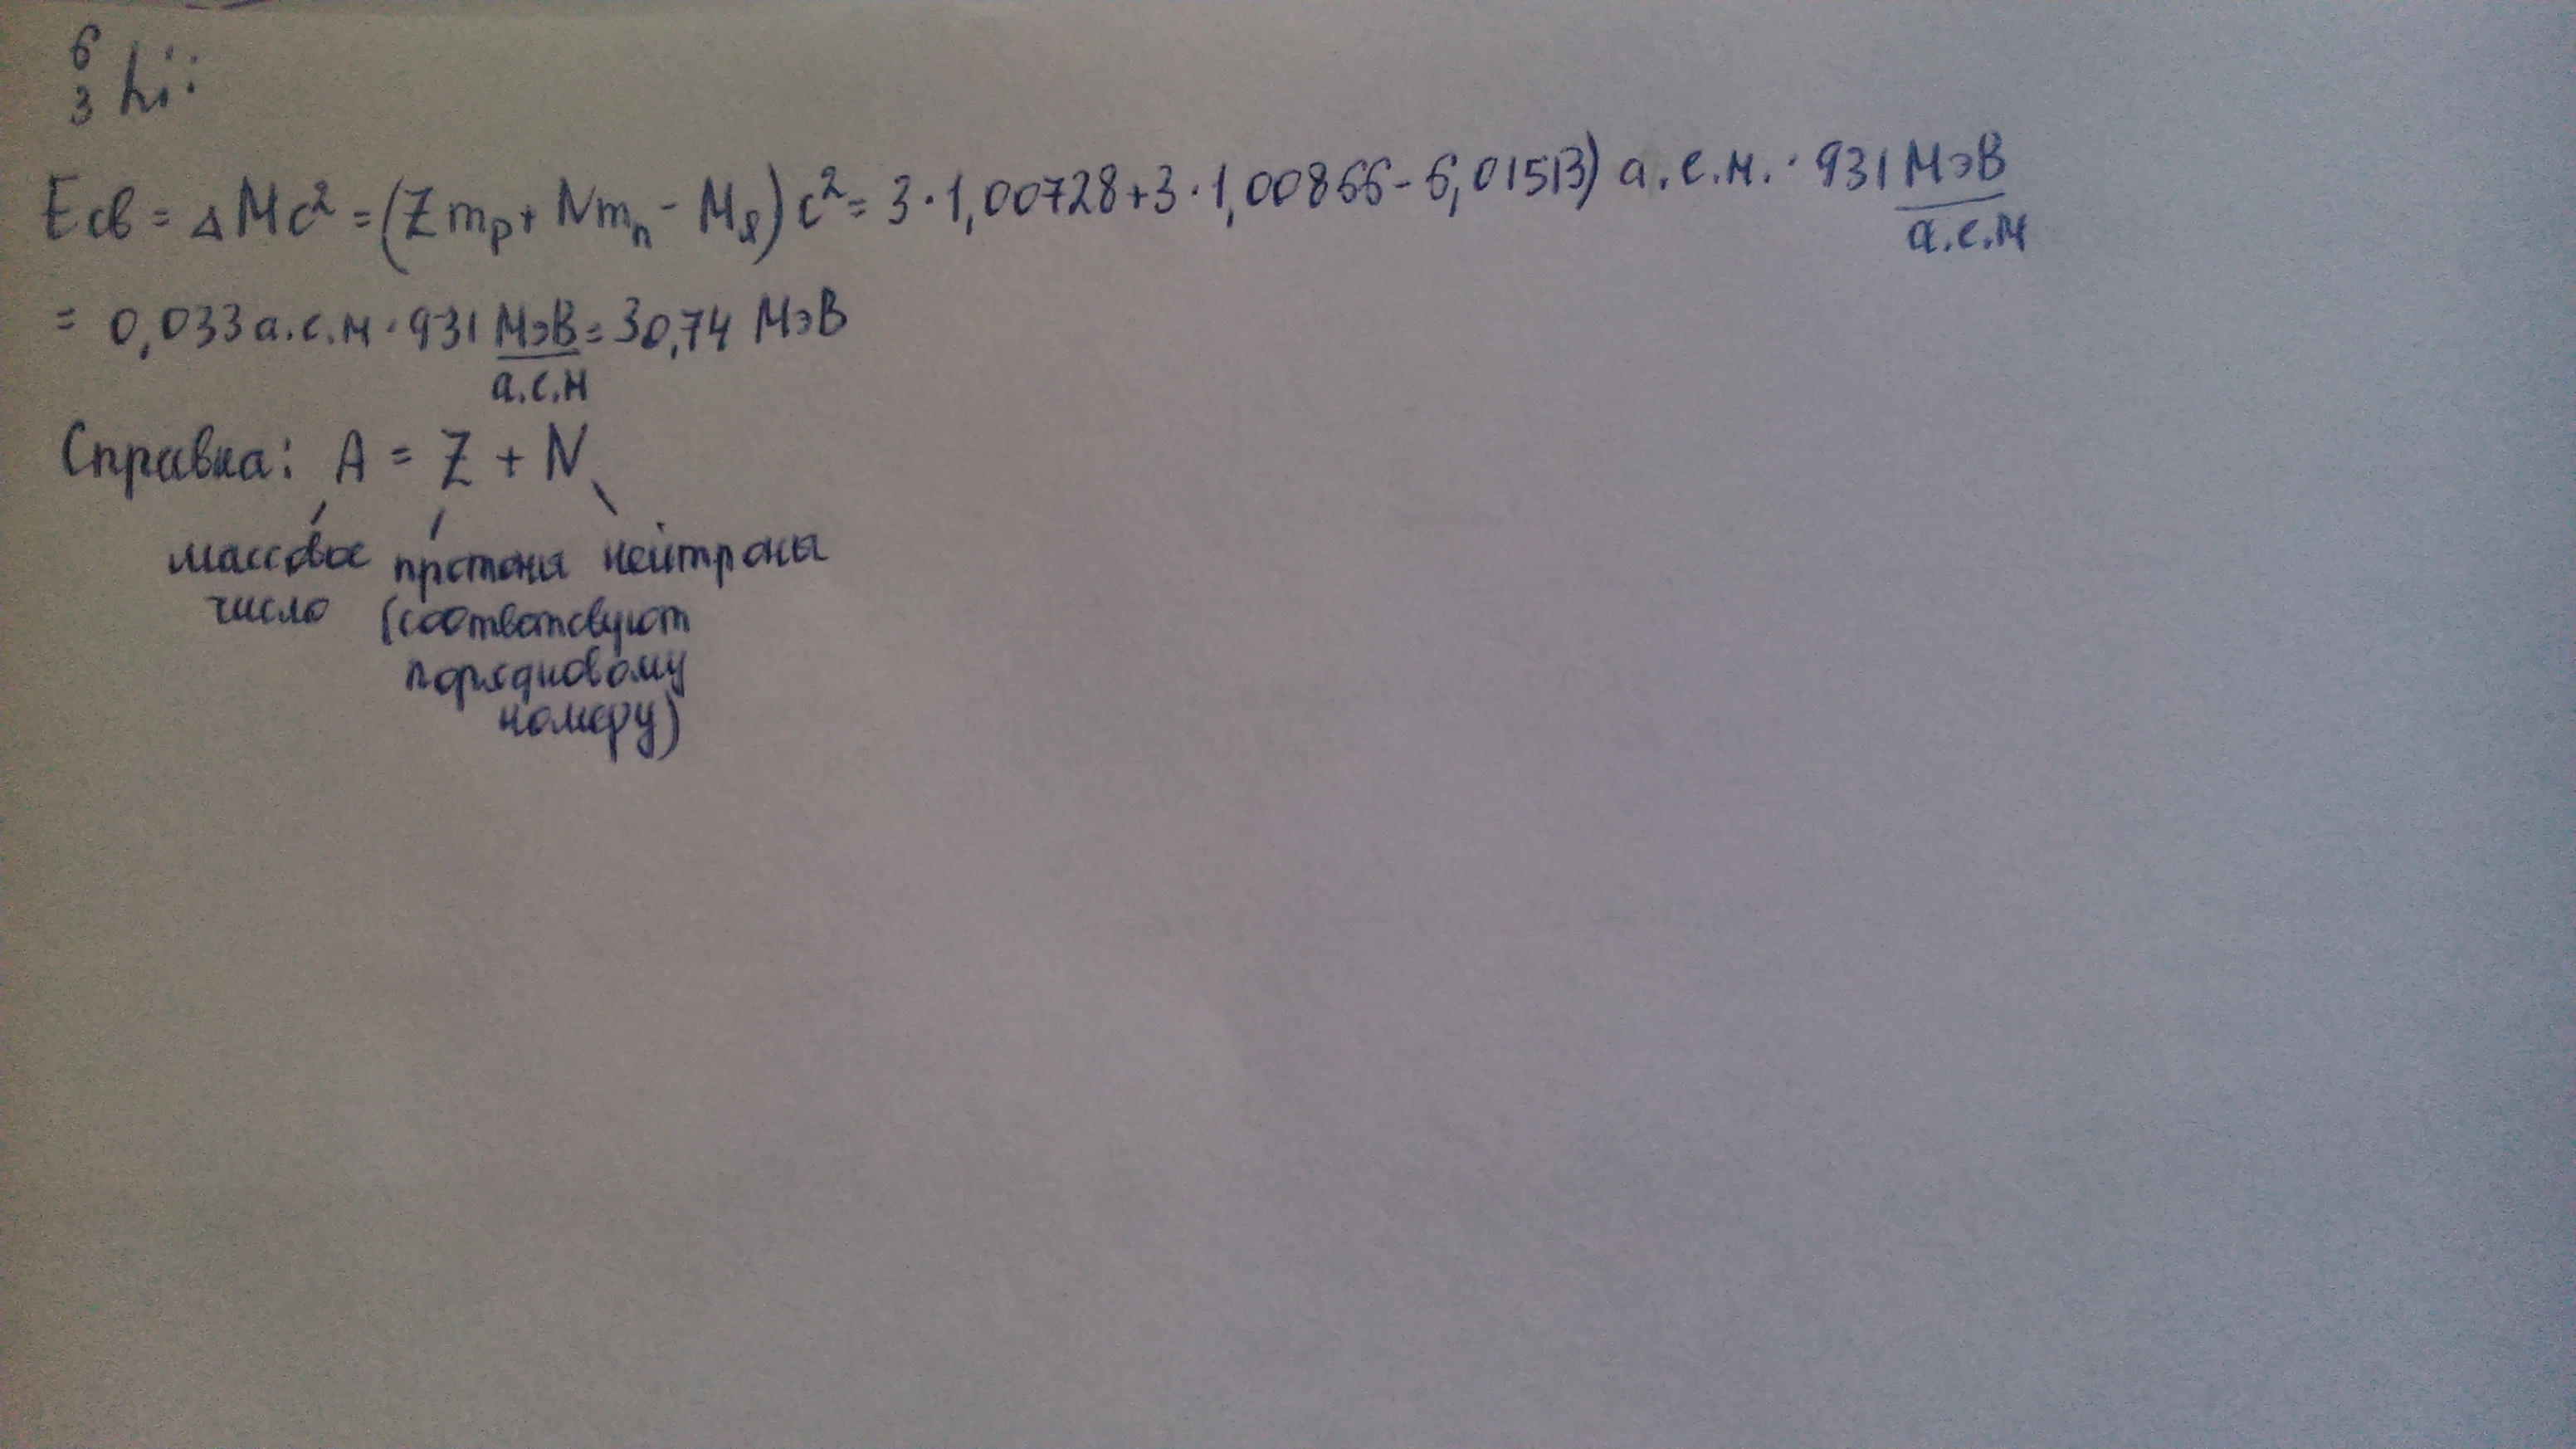 ⁶₃Li:
Eсв = ΔMc² = (Zmp + Nmn - Mя)c² = 3·1,00728+3·1,00866-6,01513) а.е.м. · 931 МэВ/а.е.м
= 0,033 а.е.м · 931 МэВ/а.е.м = 30,74 МэВ
Справка: A = Z + N
массовое протоны нейтроны
число (соответсвуют
порядковому
номеру)